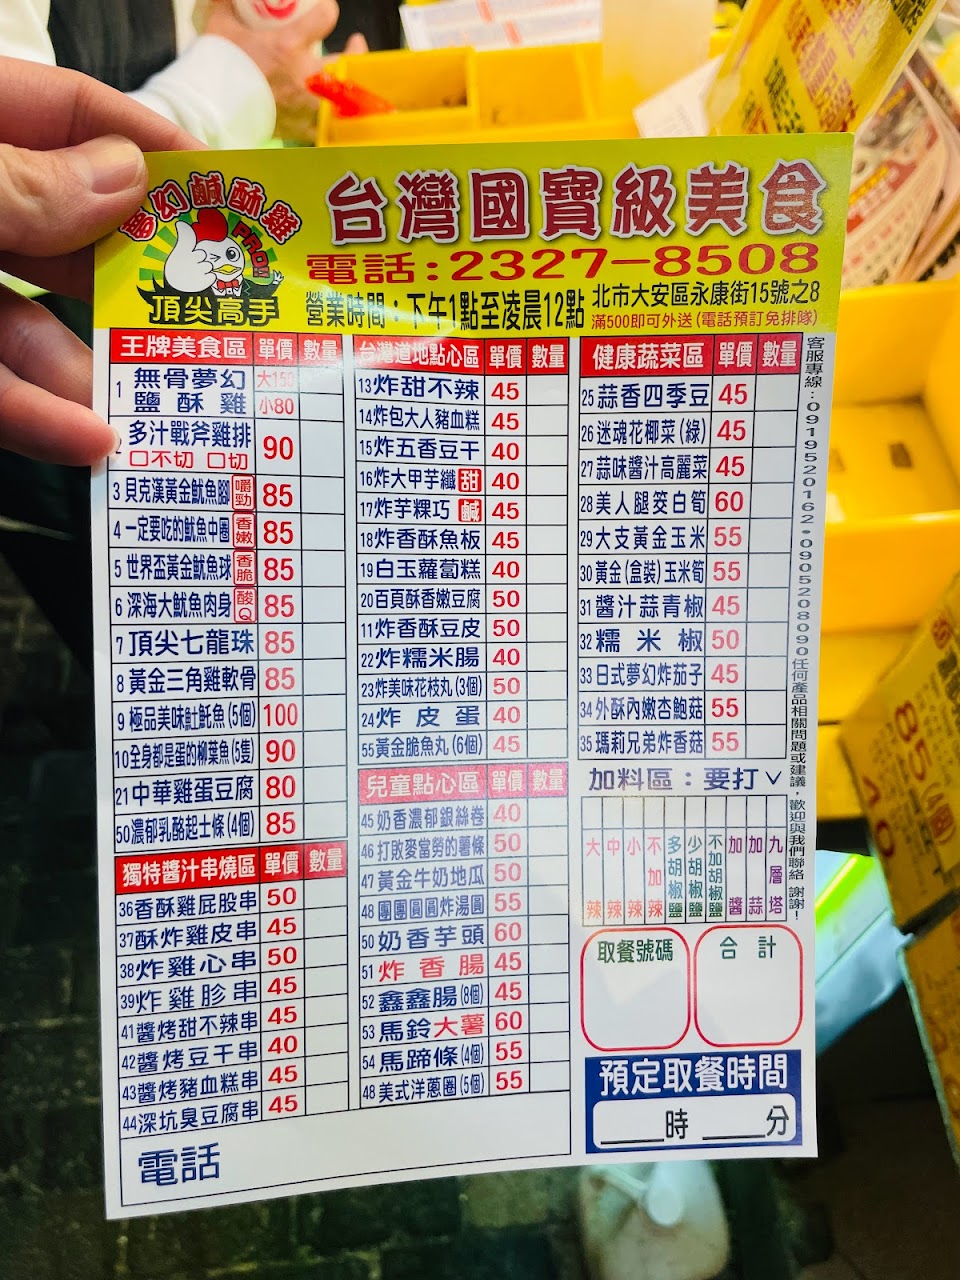 夢幻鹹酥雞
PRO
頂尖高手
台灣國寶級美食
電話:2327-8508
營業時間:下午1點至凌晨12點
北市大安區永康街15號之8
滿500即可外送(電話預訂免排隊)
王牌美食區 單價 數量
1 無骨夢幻鹽酥雞 大150 小80
2 多汁戰斧雞排 口不切 口切 90
3 貝克漢黃金魷魚腳 嚼勁 85
4 一定要吃的魷魚中圈 香嫩 85
5 世界盃黃金魷魚球 香脆 85
6 深海大魷魚肉身 酸Q 85
7 頂尖七龍珠 85
8 黃金三角雞軟骨 85
9 極品美味魟魠魚(5個) 100
10 全身都是蛋的柳葉魚(5隻) 90
21 中華雞蛋豆腐 80
50 濃郁乳酪起士條(4個) 85
獨特醬汁串燒區 單價 數量
36 香酥雞屁股串 50
37 酥炸雞皮串 45
38 炸雞心串 50
39 炸雞胗串 45
41 醬烤甜不辣串 45
42 醬烤豆干串 40
43 醬烤豬血糕串 45
44 深坑臭豆腐串 45
電話
台灣道地點心區 單價 數量
13 炸甜不辣 45
14 炸包大人豬血糕 45
15 炸五香豆干 40
16 炸大甲芋籤 甜 40
17 炸芋粿巧 鹹 45
18 炸香酥魚板 45
19 白玉蘿蔔糕 40
20 百頁酥香嫩豆腐 50
11 炸香酥豆皮 50
22 炸糯米腸 40
23 炸美味花枝丸(3個) 50
24 炸皮蛋 40
55 黃金脆魚丸(6個) 45
兒童點心區 單價 數量
45 奶香濃郁銀絲卷 40
46 打敗麥當勞的薯條 50
47 黃金牛奶地瓜 50
48 團團圓圓炸湯圓 55
50 奶香芋頭 60
51 炸香腸 45
52 鑫鑫腸(8個) 45
53 馬鈴大薯 60
54 馬蹄條(4個) 55
48 美式洋蔥圈(5個) 55
健康蔬菜區 單價 數量
25 蒜香四季豆 45
26 迷魂花椰菜(綠) 45
27 蒜味醬汁高麗菜 45
28 美人腿筊白筍 60
29 大支黃金玉米 55
30 黃金(盒裝)玉米筍 55
31 醬汁蒜青椒 45
32 糯米椒 50
33 日式夢幻炸茄子 45
34 外酥內嫩杏鮑菇 55
35 瑪莉兄弟炸香菇 55
加料區:要打✓
大辣
中辣
小辣
不加辣
多胡椒鹽
少胡椒鹽
不加胡椒鹽
加醬
加蒜
九層塔
取餐號碼
合計
預定取餐時間
____時 ____分
客服專線:0919520162•0905208090任何產品相關問題或建議,歡迎與我們聯絡 謝謝!